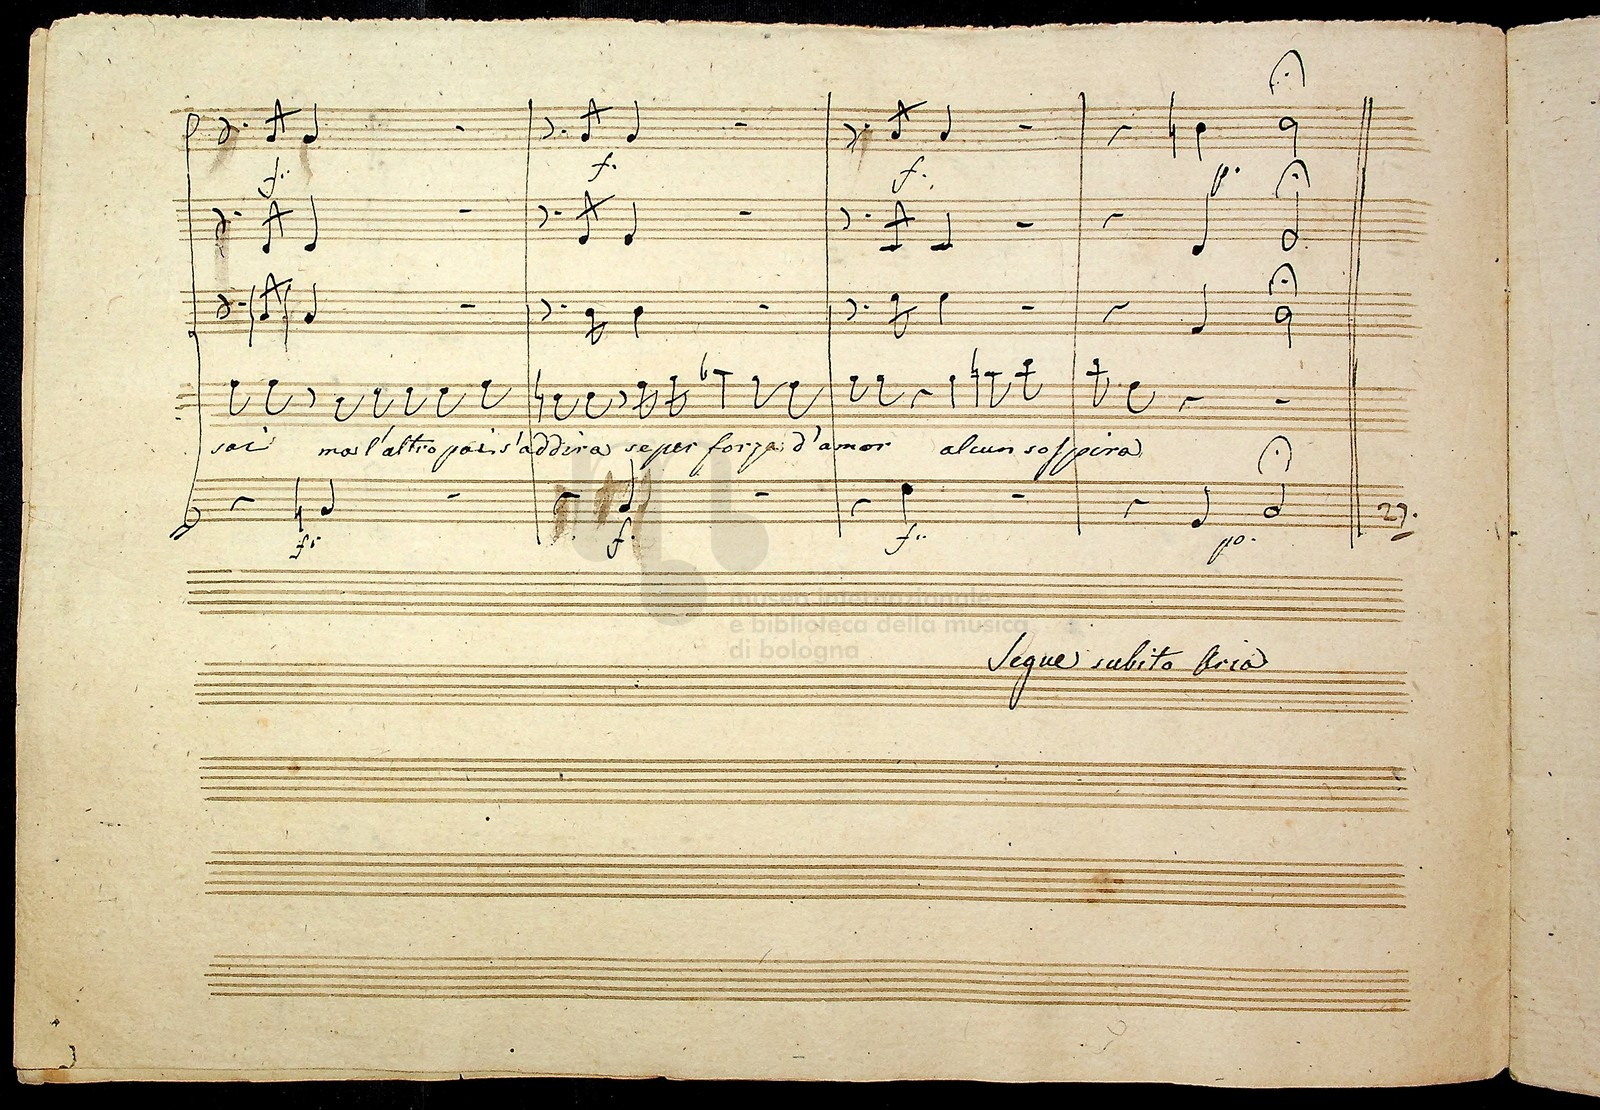 f. f. f. p.
sai ma l'altro poi s'addira se per forza d'amor alcun sospira
f. f. f. po.
27.
museo internazionale
e biblioteca della musica
di bologna
Segue subito Aria